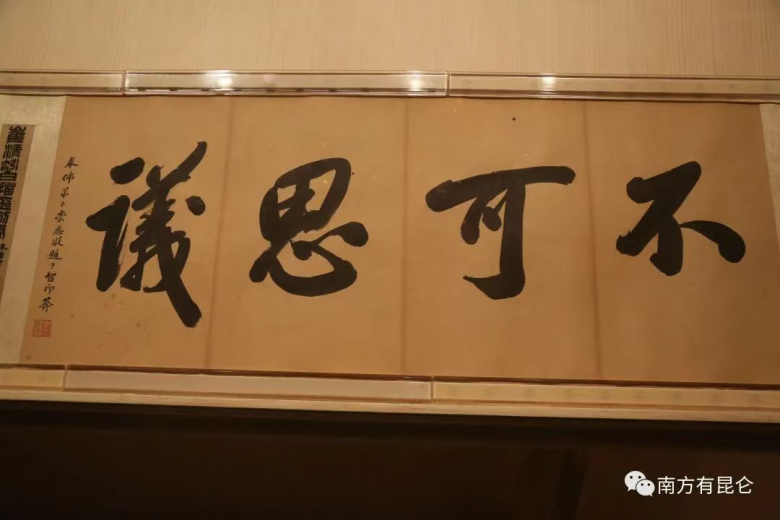 不可思議
奉佛弟子崇慈敬題于智印菴
南方有昆仑